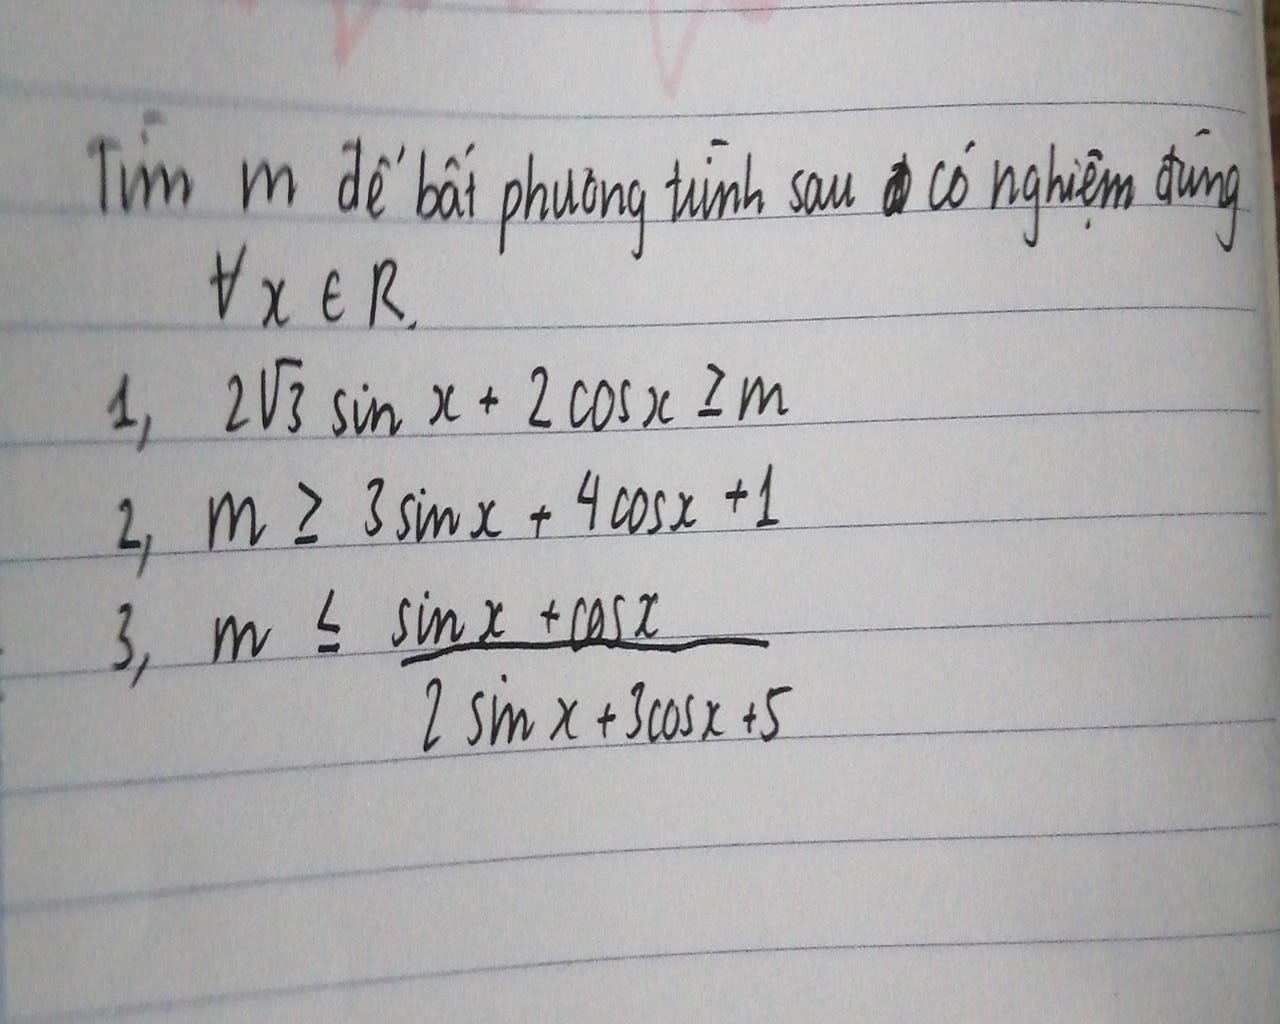 Tìm m để bất phương trình sau có nghiệm đúng
∀x ∈ R.
1, 2√3 sin x + 2 cosx ≥ m
2, m ≥ 3 sin x + 4 cosx + 1
3, m ≤ sin x + cosx
2 sin x + 3cosx + 5